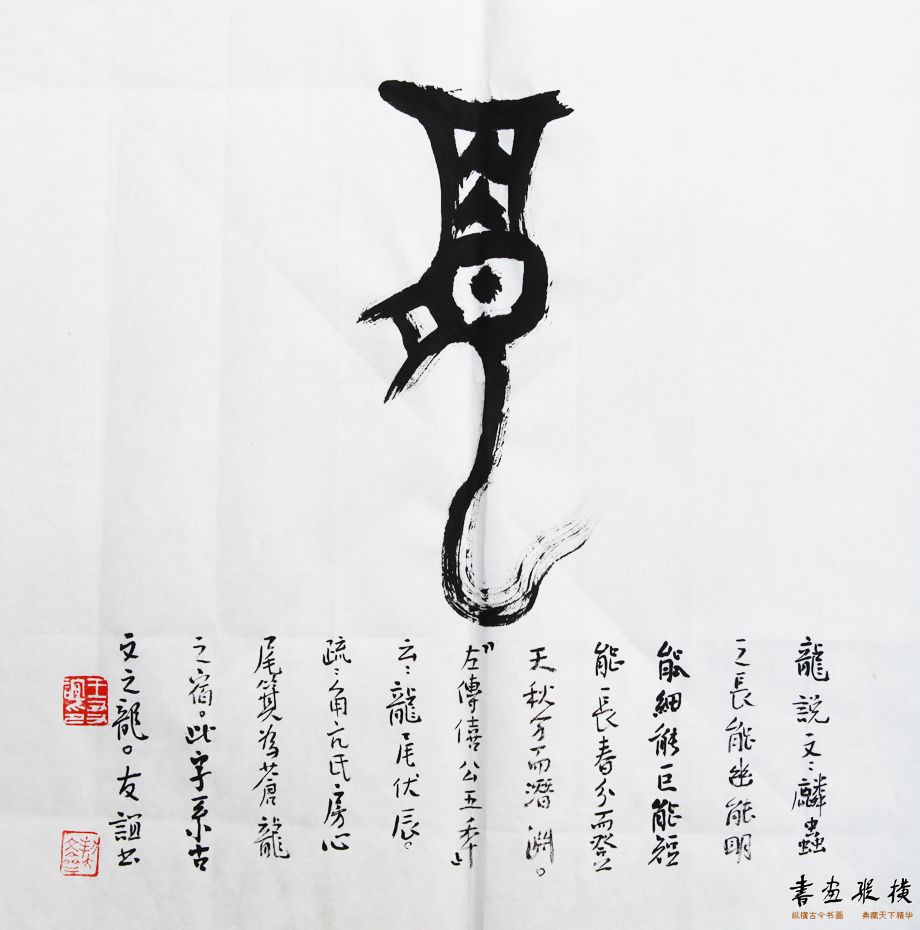 龍
龍説文:麟蟲
之長能幽能明
能細能巨能短
能長春分而登
天秋分而潛淵。
“左傳僖公五季”
云:龍尾伏辰。
疏:角亢氐房心
尾箕為蒼龍
之宿。此字系古
文之龍。友誼書
書画縱橫
纵横古今书画 典藏天下精华